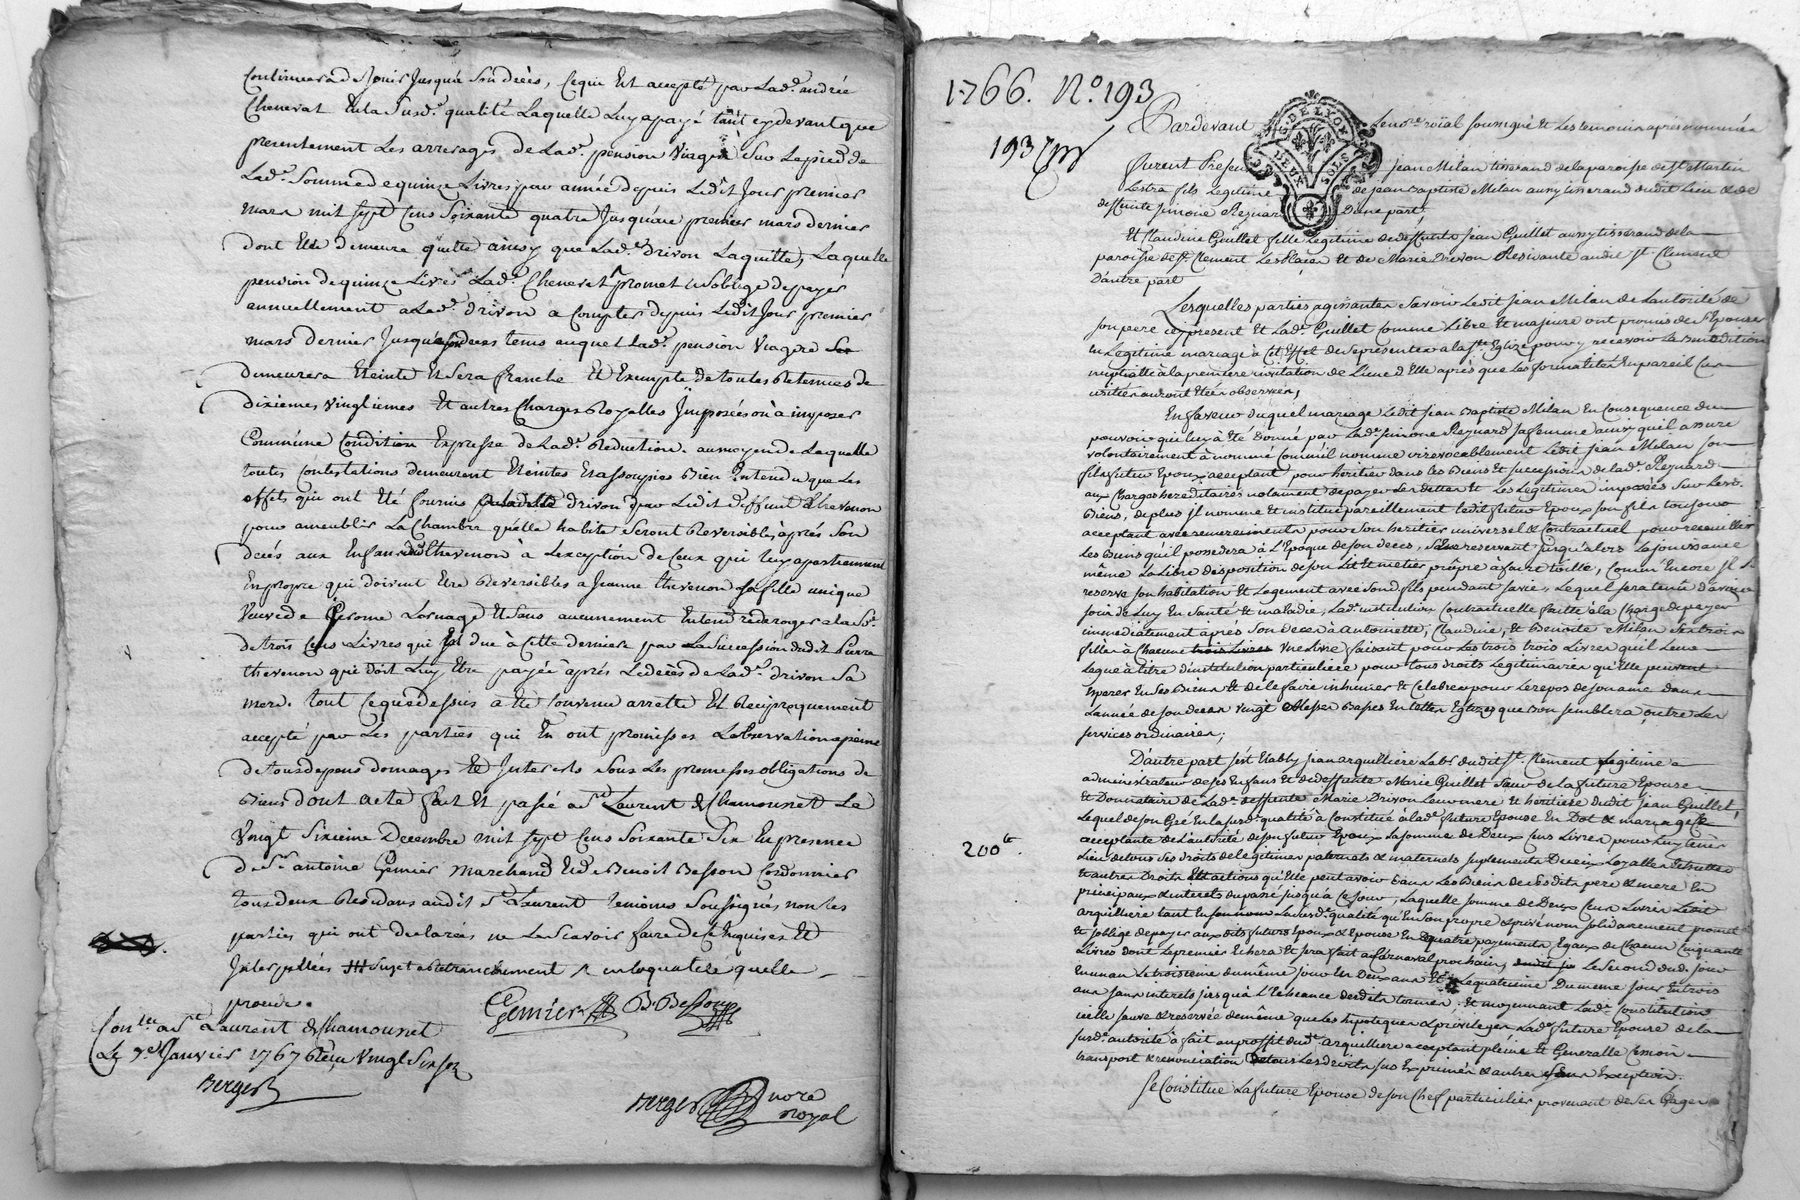 Continuera de Jouir Jusqu'a son deces, Ce qui Est accepté par Lad.e andrée
Chenevat Enla Susd.e qualité Laquelle Luy a payé tant cydevant que
presentement Les arrerages de Lad.e pension Viagere Sur Lepied de
Lad.e Somme de quinze Livres par année depuis Ledit Jour premier
mars mil sept Cens Soixante quatre Jusqu'au premier mars dernier
dont Elle demeure quitte ainsy que Lad.e drivon Laquitte, Laquelle
pension de quinze Livres Lad.e Chenevat promet & s'oblige de payer
annuellement a Lad.e drivon a Compter depuis Ledit Jour premier
mars dernier Jusqu'a son deces tems auquel Lad.e pension Viagere
demeurera Eteinte Et Sera franche Et Exempte de toutes Retenues de
dixiemes, vingtiemes Et autres Charges Royalles Imposées ou a imposer
Comme Condition Expresse de Lad.e Reduction. au moyen de Laquelle
toutes Contestations demeurent Eteintes Et assoupies Bien Entendu que Les
effets qui ont Eté fournis a Lad.e drivon par Ledit deffunt thevenon
pour ameublir La Chambre quelle habite Seront Reversibles après Son
decés aux Enfans dud. thevenon à Lexception de Ceux qui Luy apartiennent
En propre qui doivent Etre Reversibles a Jeanne thevenon Sa fille unique
Veuve de Gerome Lornage Et Sans aucunement Entendre deroger a la So.e
de trois Cens Livres qui Est due à Cette derniere par La Succession dudit Pierre
thevenon qui doit Luy Etre payée après Ledecès de Lad.e drivon Sa
mere. tout Ceque dessus a Eté Convenu arretté Et Reciproquement
accepté par Les parties qui En ont promis Lobservation a peine
de tous depens domages Et Interests Sous Les promesses obligations de
Biens dont acte fait Et passé a St Laurent de Chamousset Le
Vingt Sixieme Decembre mil sept Cens Soixante Six En presence
de Sr. antoine Gemier Marchand Et de Benoit Besson Cordonnier
tous deux Residans audit St Laurent temoins Soussignés, non les
parties qui ont declarées ne Le Scavoir faire de Ce Enquises Et
Interpellées Sujet a Retranchement en la qualité quelle
procede.
Gemier B. Besson
Con.lee a St Laurent de Chamousset
Le 7.e Janvier 1767 Reçu Vingt Six sols
Berger
Berger no.re
Royal
1766. N.o 193
193
G. DE LYON
DEUX SOLS
Pardevant Le no.re roïal soussigné Et Les temoins après nommés
furent Presens Jean Milan tisserand de la paroisse de St Martin
Lestra fils Legitime de Jean Baptiste Milan aussy tisserand dudit Lieu & de
deffunte Simone Reynard D'une part,
Et Claudine Guillet fille Legitime de deffunts Jean Guillet aussy tisserand de la
paroisse de St Clement Les Places Et de Marie Drivon Residante audit St Clement
D'autre part
Lesquelles parties agissantes Savoir Ledit Jean Milan de L'autorité de
son pere icy present Et Lad.e Guillet Comme Libre Et majeure ont promis de s'Epouser
En Legitime mariage à Cet Effet de se presenter a la Ste Eglise pour y recevoir La Benediction
nuptialle à la premiere invitation de L'une d'Elle après que Les formalités En pareil Cas
usitées auront Eté observées,
En faveur duquel mariage Ledit Jean Baptiste Milan En Consequence du
pouvoir qui luy à Eté donné par Lad.e Simone Reynard sa femme ainsy qu'il assure
volontairement à nommé Comme il nomme irrevocablement Ledit Jean Milan son
fils futur Epoux acceptant pour heritier dans les Biens Et succession de lad.e Reynard
aux Charges hereditaires notament de payer Les dettes Et Les Legitimes imposées sur Lesd.
Biens, de plus Il nomme Et institue pareillement Ledit futur Epoux son fils toujours
acceptant avec remerciments pour son heritier universel & Contractuel pour recueillir
Les Biens qu'il possedera à L'Epoque de son deces, se reservant Jusqu'alors La Jouissance
même La Libre disposition de son Lit & metier propre a faire toille, Comm'Encore Il se
reserve son habitation Et Logement avec son d. fils pendant sa vie, Lequel sera tenu d'avoir
soin de Luy En santé Et maladie, Lad.e institution Contractuelle faitte à la Charge de payer
immediatement après son deces à Antoinette, Claudine, Et Benoite Milan ses trois
filles à Chacune une Livre faisant pour Les trois trois Livres qu'il Leur
Legue à titre d'institution particuliere pour tous droits Legitimaires qu'Elle peuvent
Esperer En ses Biens Et de le faire inhumer & Celebrer pour Le repos de son ame dans
L'année de son deces vingt Messes Basses En telles Eglizes que Bon semblera outre Les
services ordinaires;
D'autre part s'est Etably Jean arquilliere Lab.r dudit St. Clement Legitime
administrateur de ses Enfans Et de deffunte Marie Guillet sœur de La future Epouse
Et Donnataire de Lad.e deffunte Marie Drivon Leur mere Et heritiere dudit Jean Guillet,
Lequel de son Gré En la susd.e qualité a Constitué a lad.e future Epouse En Dot & mariage
acceptante de L'autorité de son futur Epoux La somme de Deux Cens Livres pour Luy tenir
200tt
Lieu de tous ses droits de Legitimes paternels & maternels suplements D'iceux Loyalles Echutes
Et autres Droits Et actions qu'Elle peut avoir dans Les Biens de sesdits pere & mere En
principaux & interets du passé jusqu'a Ce Jour, Laquelle somme de Deux Cens Livres Ledit
arquilliere tant En son nom La susd.e qualité qu'En son propre & privé nom solidairement promet
Et s'oblige de payer aux dits futurs Epoux & Epouse En quatre payements Egaux de Chacun Cinquante
Livres dont Le premier Echera & sera fait au Carnaval prochain, Le second dud. jour
En un an Le troisieme du même Jour En Deux ans Et Le quatrieme Du meme Jour En trois
ans sans interets jusqu'à L'Echeance desdits termes; Et moyennant Lad.e Constitution
icelle sauve & reservée de même que Les hipoteques & privileges Lad.e future Epouse de la
susd.e autorité à fait au proffit dud. arquilliere acceptant pleine Et Generalle Cession
transport & renonciation de tous Les droits sus Exprimés & autres sans Exception.
Se Constitue La future Epouse de son Chef particulier provenant de ses Gages